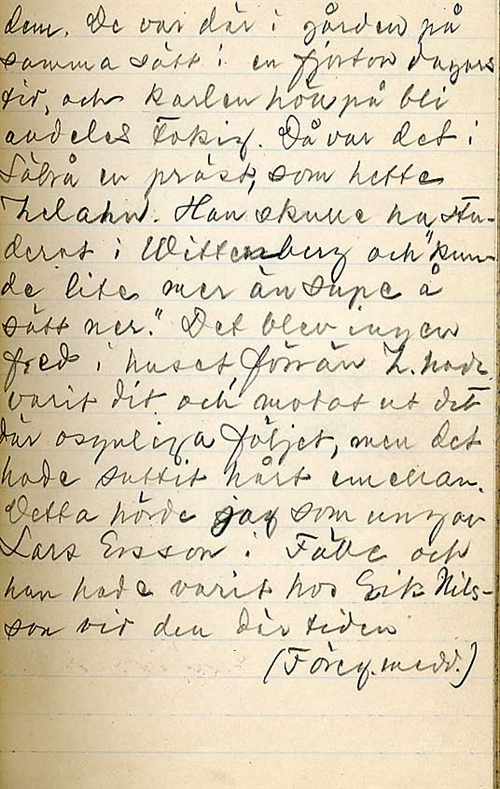 dem. De var där i gården på
samma sätt i en fjorton dagars
tid, och karlen höll på bli
andeles tokig. Då var det i
Säbrå en präst, som hette
Zelahn. Han skulle ha stu-
derat i Wittenberg och "kun-
de lite mer än supe å
sätt ner." Det blev ingen
fred i huset, förrän Z. hade
varit dit och motat ut det
där osynliga följet, men det
hade suttit hårt emellan.
Detta hörde jag som unga av
Lars Ersson i Fälle och
han hade varit hos Erik Nils-
son vid den där tiden
(Föreg. medd.)